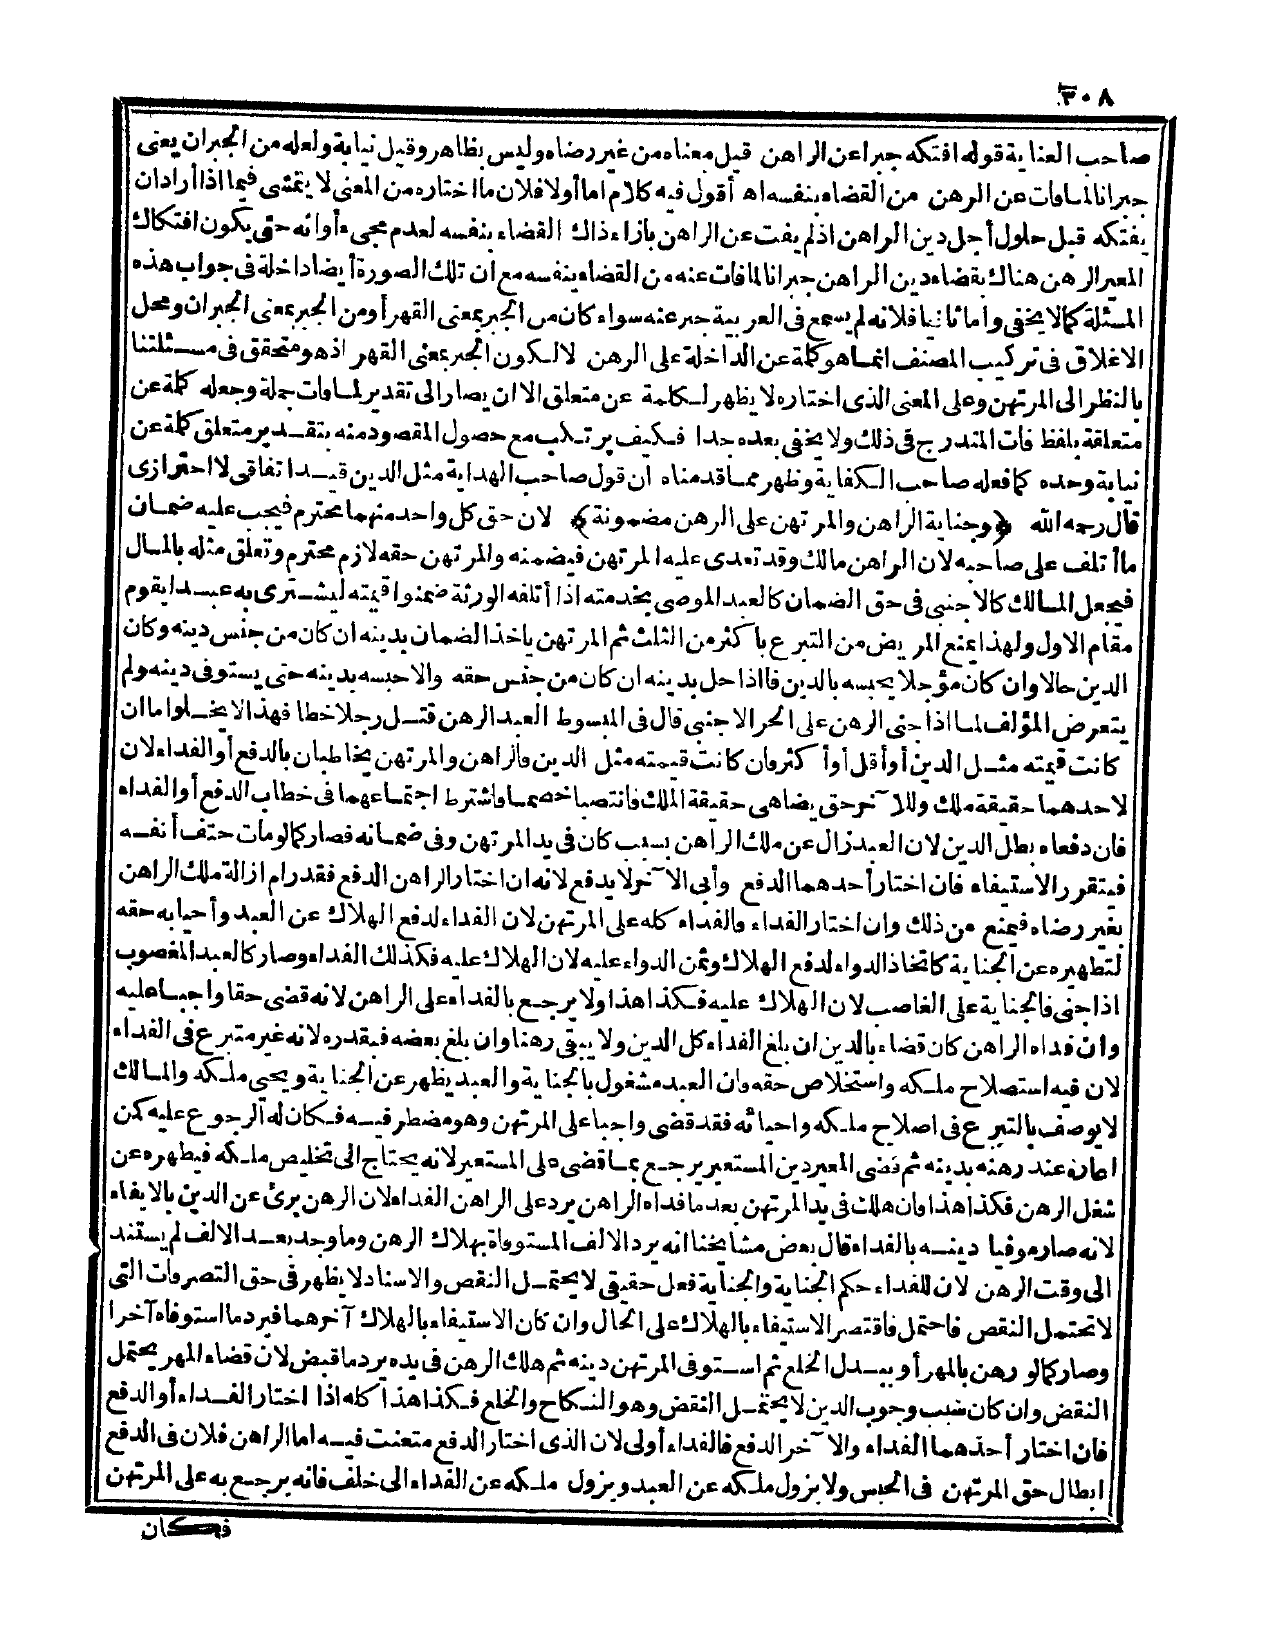 ٣٠٨
صاحب العناية قوله افتكه جبرا عن الراهن قيل معناه من غير رضاه وليس بظاهر وقيل نيابة ولعله من الجبران يعنى
جبرانا لما فات عن الرهن من القضاء بنفسه اه أقول فيه كلام اما أولا فلان ما اختاره من المعنى لا يتمشى فيما اذا أراد ان
يفتكه قبل حلول أجل دين الراهن اذ لم يفت عن الراهن بازاء ذاك القضاء بنفسه لعدم مجىء أوانه حتى يكون افتكاك
المعير الرهن هناك بقضاء دين الراهن جبرانا لما فات عنه من القضاء بنفسه مع ان تلك الصورة أيضا داخلة فى جواب هذه
المسئلة كما لا يخفى وأما ثانيا فلانه لم يسمع فى العربية جبر عنه سواء كان من الجبر بمعنى القهر أو من الجبر بمعنى الجبران ومحل
الاغلاق فى تركيب المصنف انما هو كلمة عن الداخلة على الرهن لا لكون الجبر بمعنى القهر اذ هو متحقق فى مسئلتنا
بالنظر الى المرتهن وعلى المعنى الذى اختاره لا يظهر لكلمة عن متعلق الا ان يصار الى تقدير لما فات جملة وجعله كلمة عن
متعلقة بلفظ فات المندرج فى ذلك ولا يخفى بعده جدا فكيف يرتكب مع حصول المقصود منه بتقدير متعلق كلمة عن
نيابة وحده كما فعله صاحب الكفاية وظهر مما قدمناه ان قول صاحب الهداية مثل الدين قيد اتفاقى لا احترازى
قال رحمه الله ﴿وجناية الراهن والمرتهن على الرهن مضمونة﴾ لان حق كل واحد منهما محترم فيجب عليه ضمان
ما أتلف على صاحبه لان الراهن مالك وقد تعدى عليه المرتهن فيضمنه والمرتهن حقه لازم محترم وتعلق مثله بالمال
فيجعل المالك كالاجنبى فى حق الضمان كالعبد الموصى بخدمته اذا أتلفه الورثة ضمنوا قيمته ليشترى به عبدا يقوم
مقام الاول ولهذا يمنع المريض من التبرع باكثر من الثلث ثم المرتهن ياخذ الضمان بدينه ان كان من جنس دينه وكان
الدين حالا وان كان مؤجلا يحبسه بالدين فاذا حل بدينه ان كان من جنس حقه والا حبسه بدينه حتى يستوفى دينه ولم
يتعرض المؤلف لما اذا جنى الرهن على الحر الاجنبى قال فى المبسوط العبد الرهن قتل رجلا خطا فهذا لا يخلوا ما ان
كانت قيمته مثل الدين أو أقل أو أكثر وان كانت قيمته مثل الدين فالراهن والمرتهن يخاطبان بالدفع أو الفداء لان
لاحدهما حقيقة ملك وللآخر حق يضاهى حقيقة الملك فانتصبا خصما فاشترط اجتماعهما فى خطاب الدفع أو الفداء
فان دفعاه بطل الدين لان العبد زال عن ملك الراهن بسبب كان فى يد المرتهن وفى ضمانه فصار كما لو مات حتف أنفسه
فيتقرر الاستيفاء فان اختار أحدهما الدفع وأبى الآخر لا يدفع لانه ان اختار الراهن الدفع فقد رام ازالة ملك الراهن
بغير رضاه فيمنع من ذلك وان اختار الفداء فالفداء كله على المرتهن لان الفداء لدفع الهلاك عن العبد وأحيا به حقه
لتطهيره عن الجناية كاتخاذ الدواء لدفع الهلاك وثمن الدواء عليه لان الهلاك عليه فكذلك الفداء وصار كالعبد المغصوب
اذا جنى فالجناية على الغاصب لان الهلاك عليه فكذا هذا ولا يرجع بالفداء على الراهن لانه قضى حقا واجبا عليه
وان فداه الراهن كان قضاء بالدين ان بلغ الفداء كل الدين ولا يبقى رهنا وان بلغ بعضه فبقدره لانه غير متبرع فى الفداء
لان فيه استصلاح ملكه واستخلاص حقه وان العبد مشغول بالجناية والعبد يظهر عن الجناية ويحيى ملكه والمالك
لا يوصف بالتبرع فى اصلاح ملكه واحيائه فقد قضى واجبا على المرتهن وهو مضطر فيه فكان له الرجوع عليه كمن
اعان عند رهنه بدينه ثم قضى المعير دين المستعير يرجع بما قضى على المستعير لانه يحتاج الى تخليص ملكه فيطهره عن
شغل الرهن فكذا هذا وان هلك فى يد المرتهن بعد ما فداه الراهن يرد على الراهن الفداء لان الرهن برئ عن الدين بالايفاء
لانه صار موفيا دينه بالفداء قال بعض مشايخنا انه يرد الالف المستوفاة بهلاك الرهن وما وجد بعد الالف لم يستند
الى وقت الرهن لان للفداء حكم الجناية والجناية فعل حقيقى لا يحتمل النقص والاسناد لا يظهر فى حق التصرفات التى
لا تحتمل النقص فاحتمل فاقتصر الاستيفاء بالهلاك على الحال وان كان الاستيفاء بالهلاك آخرهما فيرد ما استوفاه آخرا
وصار كما لو رهن بالمهر أو ببدل الخلع ثم استوفى المرتهن دينه ثم هلك الرهن فى يده يرد ما قبض لان قضاء المهر يحتمل
النقض وان كان سبب وجوب الدين لا يحتمل النقض وهو النكاح والخلع فكذا هذا كله اذا اختار الفداء أو الدفع
فان اختار أحدهما الفداء والآخر الدفع فالفداء أولى لان الذى اختار الدفع متعنت فيه اما الراهن فلان فى الدفع
ابطال حق المرتهن فى الحبس ولا يزول ملكه عن العبد ويزول ملكه عن الفداء الى خلف فانه يرجع به على المرتهن
فكان